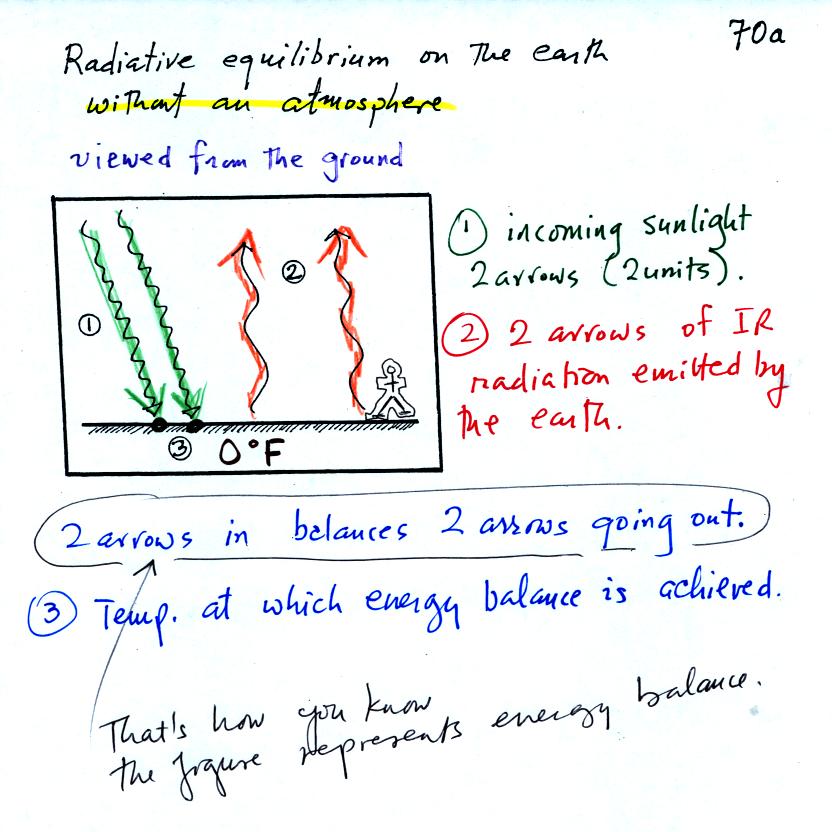 70a
Radiative equilibrium on the earth
without an atmosphere
viewed from the ground
①
②
③ 0°F
① incoming sunlight
2 arrows (2 units).
② 2 arrows of IR
radiation emitted by
the earth.
2 arrows in balances 2 arrows going out.
③ Temp. at which energy balance is achieved.
That's how you know
the figure represents energy balance.